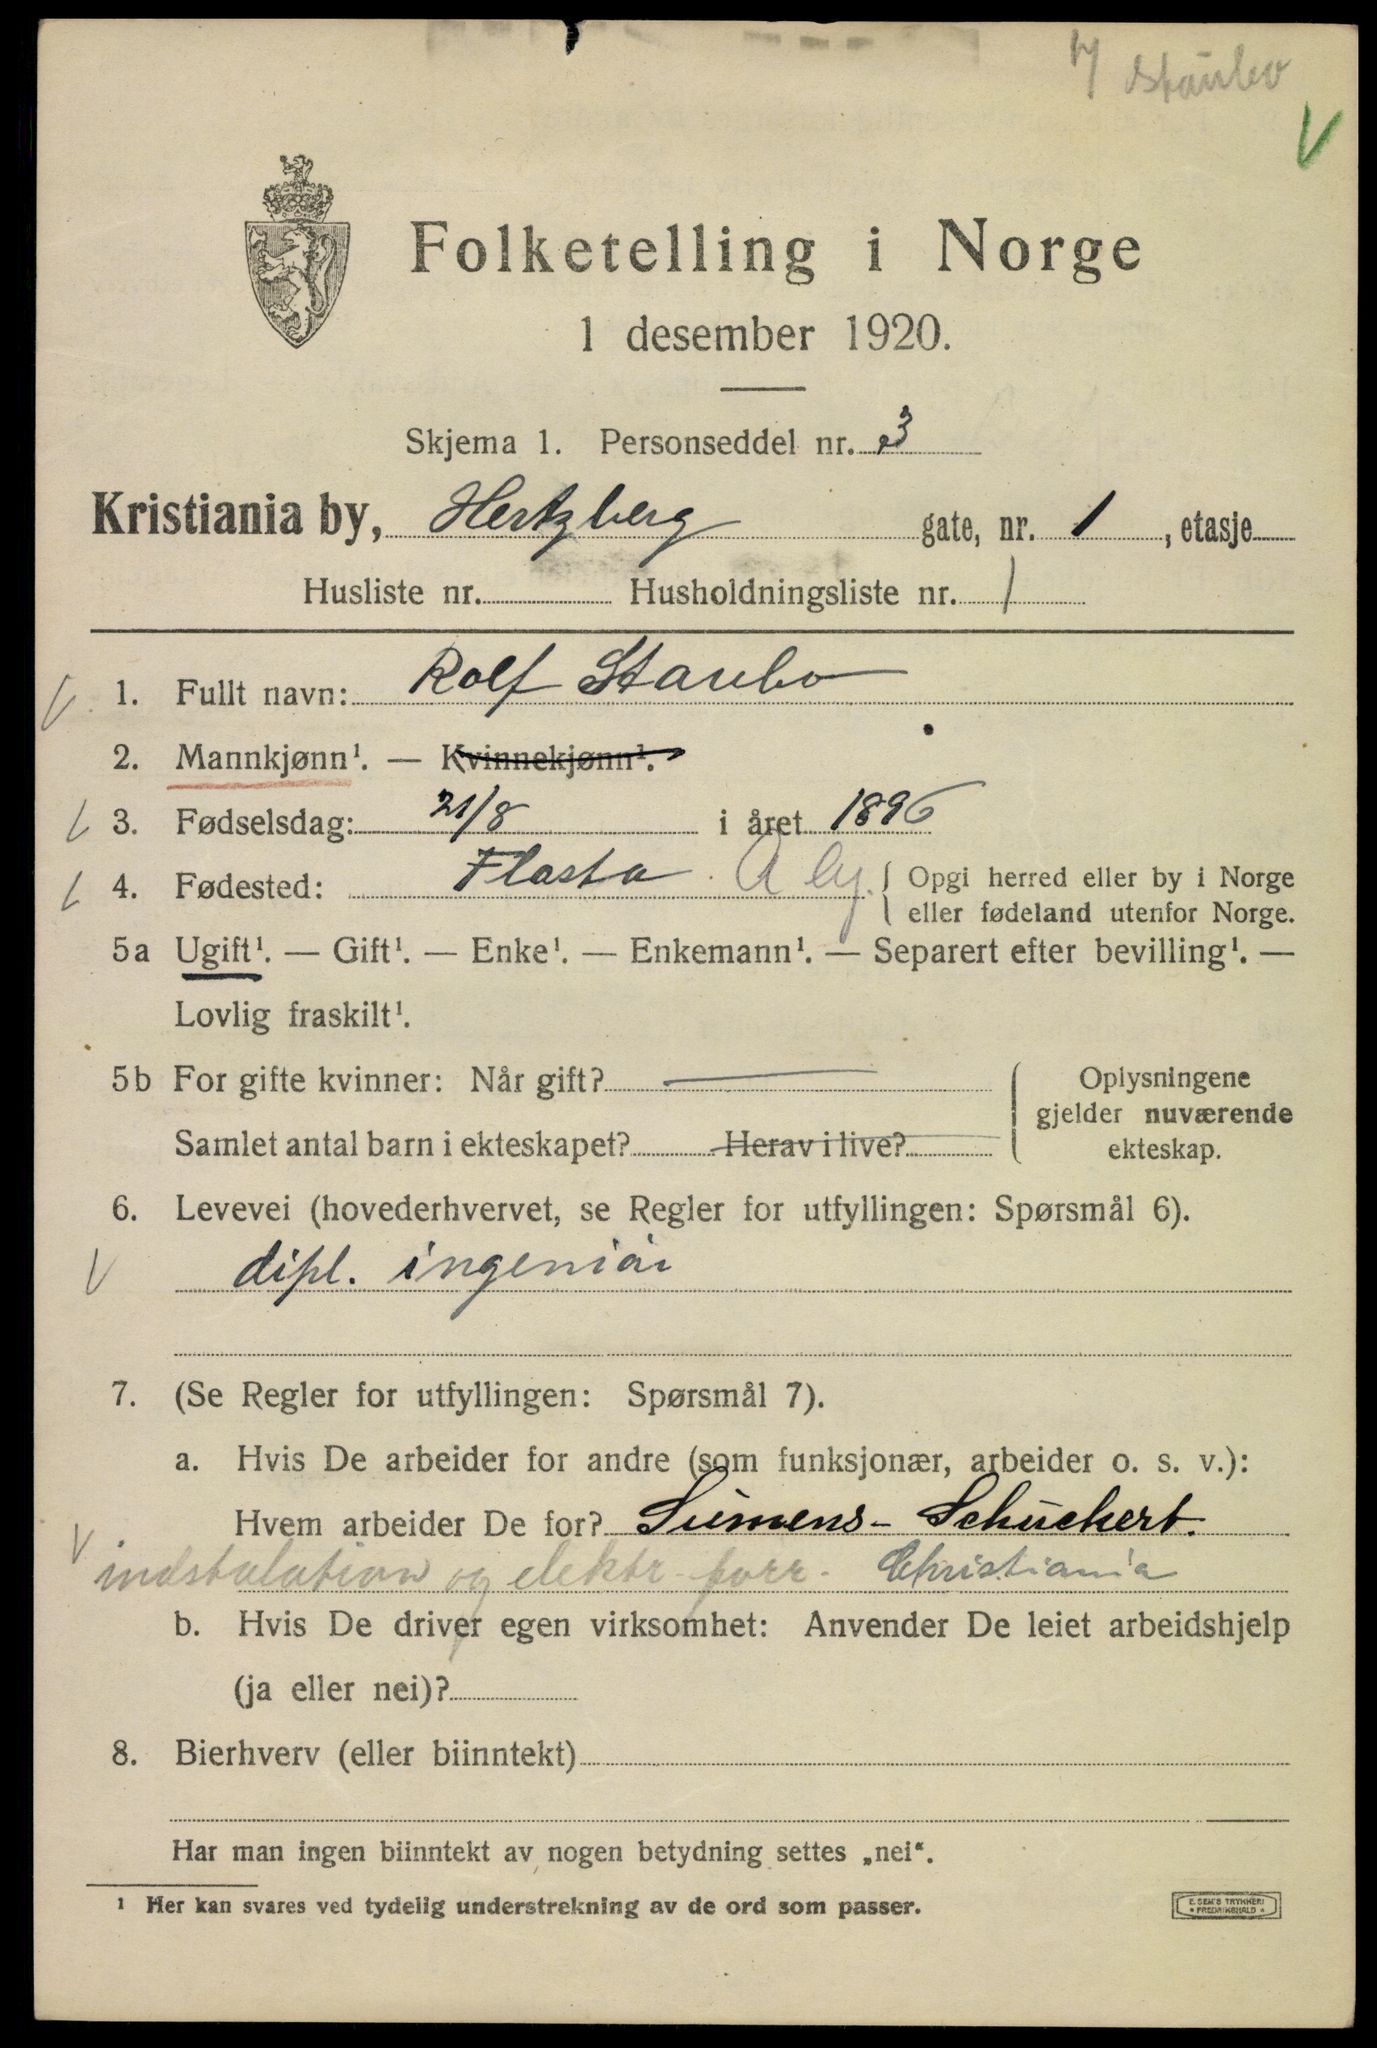 Staubo
V
Folketelling i Norge
1 desember 1920.
Skjema 1. Personseddel nr. 3
Kristiania by, Hertzberg gate, nr. 1, etasje
Husliste nr. Husholdningsliste nr. 1
1. Fullt navn: Rolf Staubo
2. Mannkjønn¹. — Kvinnekjønn¹.
3. Fødselsdag: 21/8 i året 1896
4. Fødested: Flosta A by. Opgi herred eller by i Norge
eller fødeland utenfor Norge.
5a Ugift¹. — Gift¹. — Enke¹. — Enkemann¹. — Separert efter bevilling¹. —
Lovlig fraskilt¹.
5b For gifte kvinner: Når gift?
Samlet antal barn i ekteskapet? Herav i live?
Oplysningene
gjelder nuværende
ekteskap.
6. Levevei (hovederhvervet, se Regler for utfyllingen: Spørsmål 6).
dipl. ingeniør
7. (Se Regler for utfyllingen: Spørsmål 7).
a. Hvis De arbeider for andre (som funksjonær, arbeider o. s. v.):
Hvem arbeider De for? Siemens-Schuckert.
indstalation og elektr. forr. Christiania
b. Hvis De driver egen virksomhet: Anvender De leiet arbeidshjelp
(ja eller nei)?
8. Bierhverv (eller biinntekt)
Har man ingen biinntekt av nogen betydning settes „nei“.
¹ Her kan svares ved tydelig understrekning av de ord som passer.
E. SEM'S TRYKKERI
* FREDRIKSHALD *